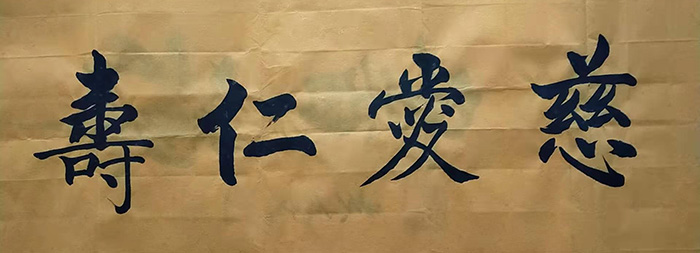 慈愛仁壽